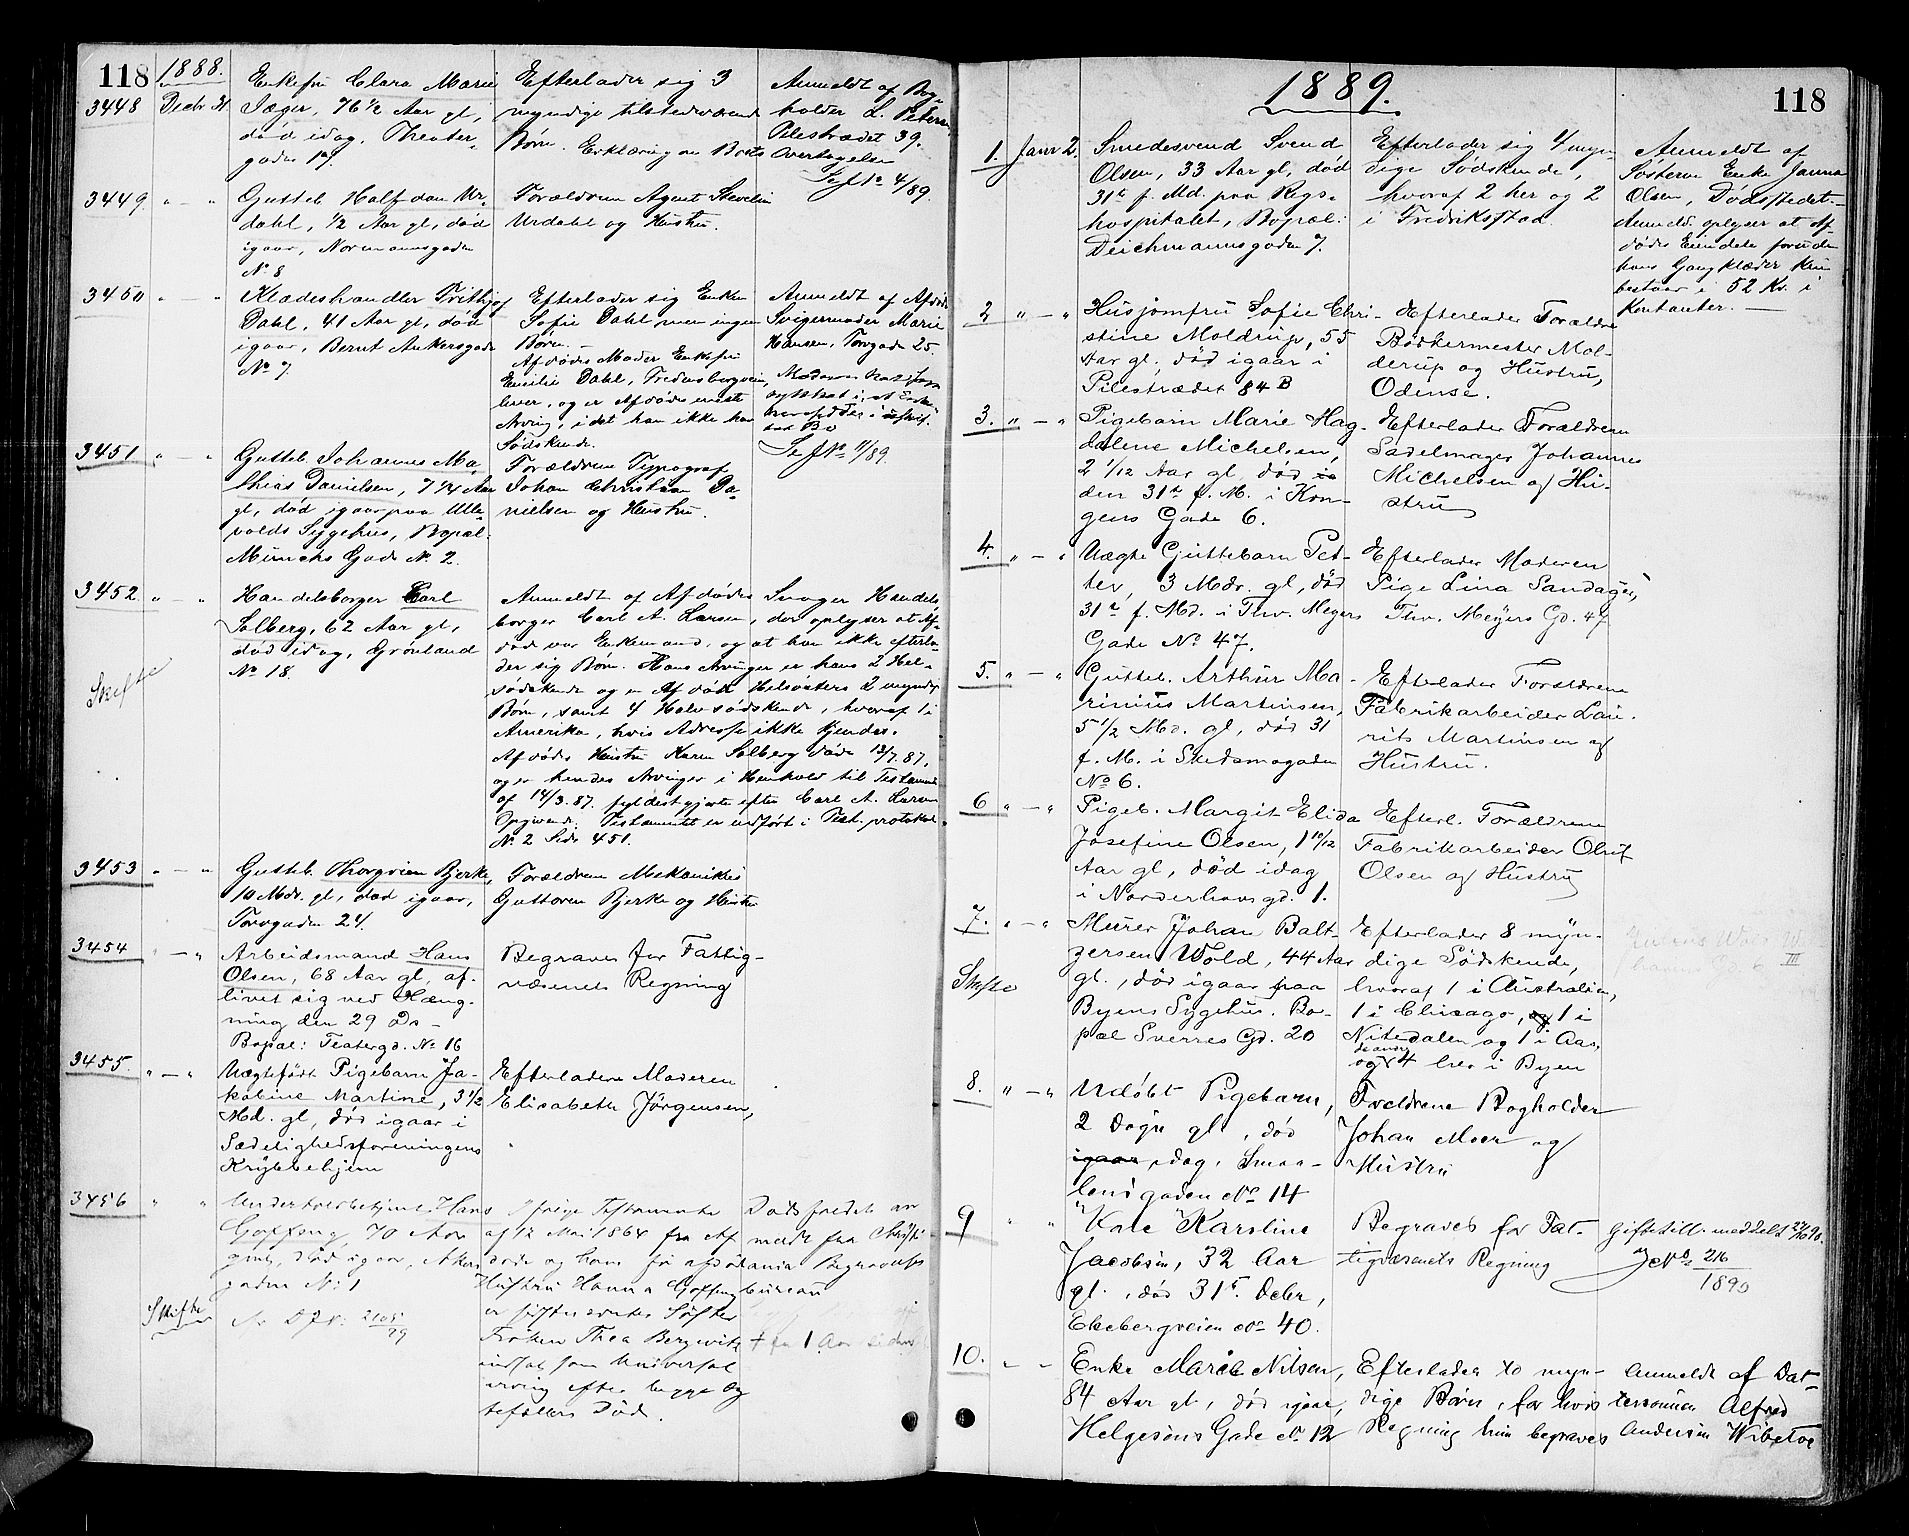 118
1888.
3448 Decbr 31 Enkefru Clara Marie
Jæger, 76 1/2 Aar gl,
død idag, Theater-
gaden 19.
Efterlader sig 3
myndige tilstedeværende
Børn. Erklæring om Boets
Overtagelse
Anmeldt af Bog-
holder L. Petersen
Pilestrædet 39.
Se J No 4/89.
3449. " — " Gutteb. Halfdan Ur-
dahl, 1/2 Aar gl, død
igaar, Normannsgaden
No 8
Forældrene Agent
Urdahl og Hustru.
3450 " — " Klædeshandler Frithjof
Dahl, 41 Aar gl, død
igaar, Bernt Ankersgade
No 7
Efterlader sig Enken
Sofie Dahl men ingen
Børn. —
Afdødes Moder Enkefru
Emilie Dahl, Fredensborgveien,
lever, og er Afdødes eneste
Arving, idet han ikke har
Sødskende.
Anmeldt af Afdødes
Svigermoder Marie
Hansen, Torvgade 25.
Se J No 11/89.
3451 " — " Gutteb. Johannes Ma-
thias Danielsen, 7 1/4 Aar
gl, død igaar paa Ulle-
volds Sygehus, Bopæl
Munchs Gade No 2.
Forældrene Typograf
Johan Christian Da-
nielsen og Hustru.
3452 " — " Handelsborger Carl
Solberg, 62 Aar gl,
død idag, Grønland
No 18.
Skifte
Anmeldt af Afdødes Svoger Handels-
borger Carl A. Larsen, der oplyser at Af-
død var Enkemand, og at han ikke efterla-
der sig Børn. Hans Arvinger er hans 2 Hel-
sødskende og en Afdød Helsøsters 2 myndige
Børn, samt 4 Halvsødskende, hvoraf 1 i
Amerika, hvis Adresse ikke kjendes.
Afdødes Hustru Karen Solberg døde 13/7 87,
og er hendes Arvinger i Henhold til Testamente
af 14/3 87. fyldestgjorte efter Carl A. Larsens
Opgivende. Testamentet er indført i Test. protokol
No 2 Side 451.
3453 " — " Gutteb. Thorgrim Bjerke,
10 Mdr. gl, død igaar,
Torvgaden 24.
Forældrene Mekanikus
Guttorm Bjerke og Hustru
3454 " — " Arbeidsmand Hans
Olsen, 68 Aar gl, af-
livet sig ved Hæng-
ning den 29 Ds —
Bopæl: Teatergd. No 16
Begraves for Fattig-
væsenets Regning
3455. " — " Uægtefødt Pigebarn Ja-
kobine Martine, 3 1/2
Md. gl, død igaar i
Sædelighedsforeningens
Krybbehjem
Efterladere Moderen
Elisabeth Jørgensen,
3456 " " Hans
Gopfang, 70 Aar
gml, død igaar, Akers
gaden No 1
Skifte
Ifølge Testamente
af 12 Mai 1864 fra Af
døde og hans
Hustru Hanna
er sidstnævntes Søster
Frøken Thea
indsat som Universal
arving efter begge og
befalers Død.
Dødsfaldet an
meldt fra Christi
ania Begravelses
bureau
+ for 1 Aar siden
1889.
118
1. Janr 2. Smedesvend Svend
Olsen, 33 Aar gl, død
31te f. Md. paa Rigs-
hospitalet, Bopæl:
Deichmannsgaden 7.
Efterlader sig 4 myn-
dige Sødskende,
hvoraf 2 her og 2
i Fredriksstad.
Anmeldt af
Søsteren Enke Janna
Olsen, Dødsstedet.
Anmeld. oplyser at Af-
dødes Eiendele foruden
hans Gangklæder kun
bestaar i 52 Kr. i
Kontanter. —
2 " — " Husjomfru Sofie Chri-
stine Moldrup, 55
Aar gl, død igaar i
Pilestrædet 84 B
Efterlader Forældre
Bødkermester Mol-
derup og Hustru,
Odense.
3. " — " Pigebarn Marie Mag-
dalene Michelsen,
2 1/12 Aar gl, død
den 31te f. M. i Kon-
gens Gade 6.
Efterlader Forældrene
Sadelmager Johannes
Michelsen og Hu-
stru
4. " — " Uægte Guttebarn Pet-
ter, 3 Mdr. gl, død
31te f. Md. i Thv. Meyers
Gade No 47.
Efterlader Moderen
Pige Lina Sandager,
Thv. Meyers Gd. 47
5. " — " Gutteb. Arthur Ma-
rinius Martinsen,
5 1/2 Md. gl, død 31
f. M. i Skedsmogaden
No 6.
Efterlader Forældrene
Fabrikarbeider Lau-
rits Martinsen og
Hustru.
6 " — " Pigeb. Margit Elida
Josefine Olsen, 1 10/12
Aar gl, død idag
i Norderhovsgd. 1.
Efterl. Forældrene
Fabrikarbeider Oluf
Olsen og Hustru
7. " — " Murer Johan Balt-
zersen Wold, 44 Aar
gl., død igaar paa
Byens Sygehus. Bo-
pæl Sverres Gd. 20
Skifte
Efterlader 8 myn-
dige Sødskende,
hvoraf 1 i Australien,
1 i Chicago, 1 i
Nitedalen og 1 i Aas,
og de andre 4 her i Byen
8. " — " Udøbt Pigebarn,
2 Døgn gl., død
igaar idag, Smaa-
lensgaden No 14
Foreldrene Bogholder
Johan Moer og
Hustru
9 " " Kale Karoline
Jacobsen, 32 Aar
gl., død 31te Decbr,
Ekebergveien No 40.
Begraves for Fat-
tigvæsenets Regning
Giftetill. meddelt
J No 216/1890
10. " " Enke Maren Nilsen,
84 Aar gl, død igaar,
Helgesens Gade No 12
Efterlader to myn-
dige Børn, for hvis
Regning hun begraves
Anmeldt af Dat-
tersønnen Alfred
Andersen Wibetoe